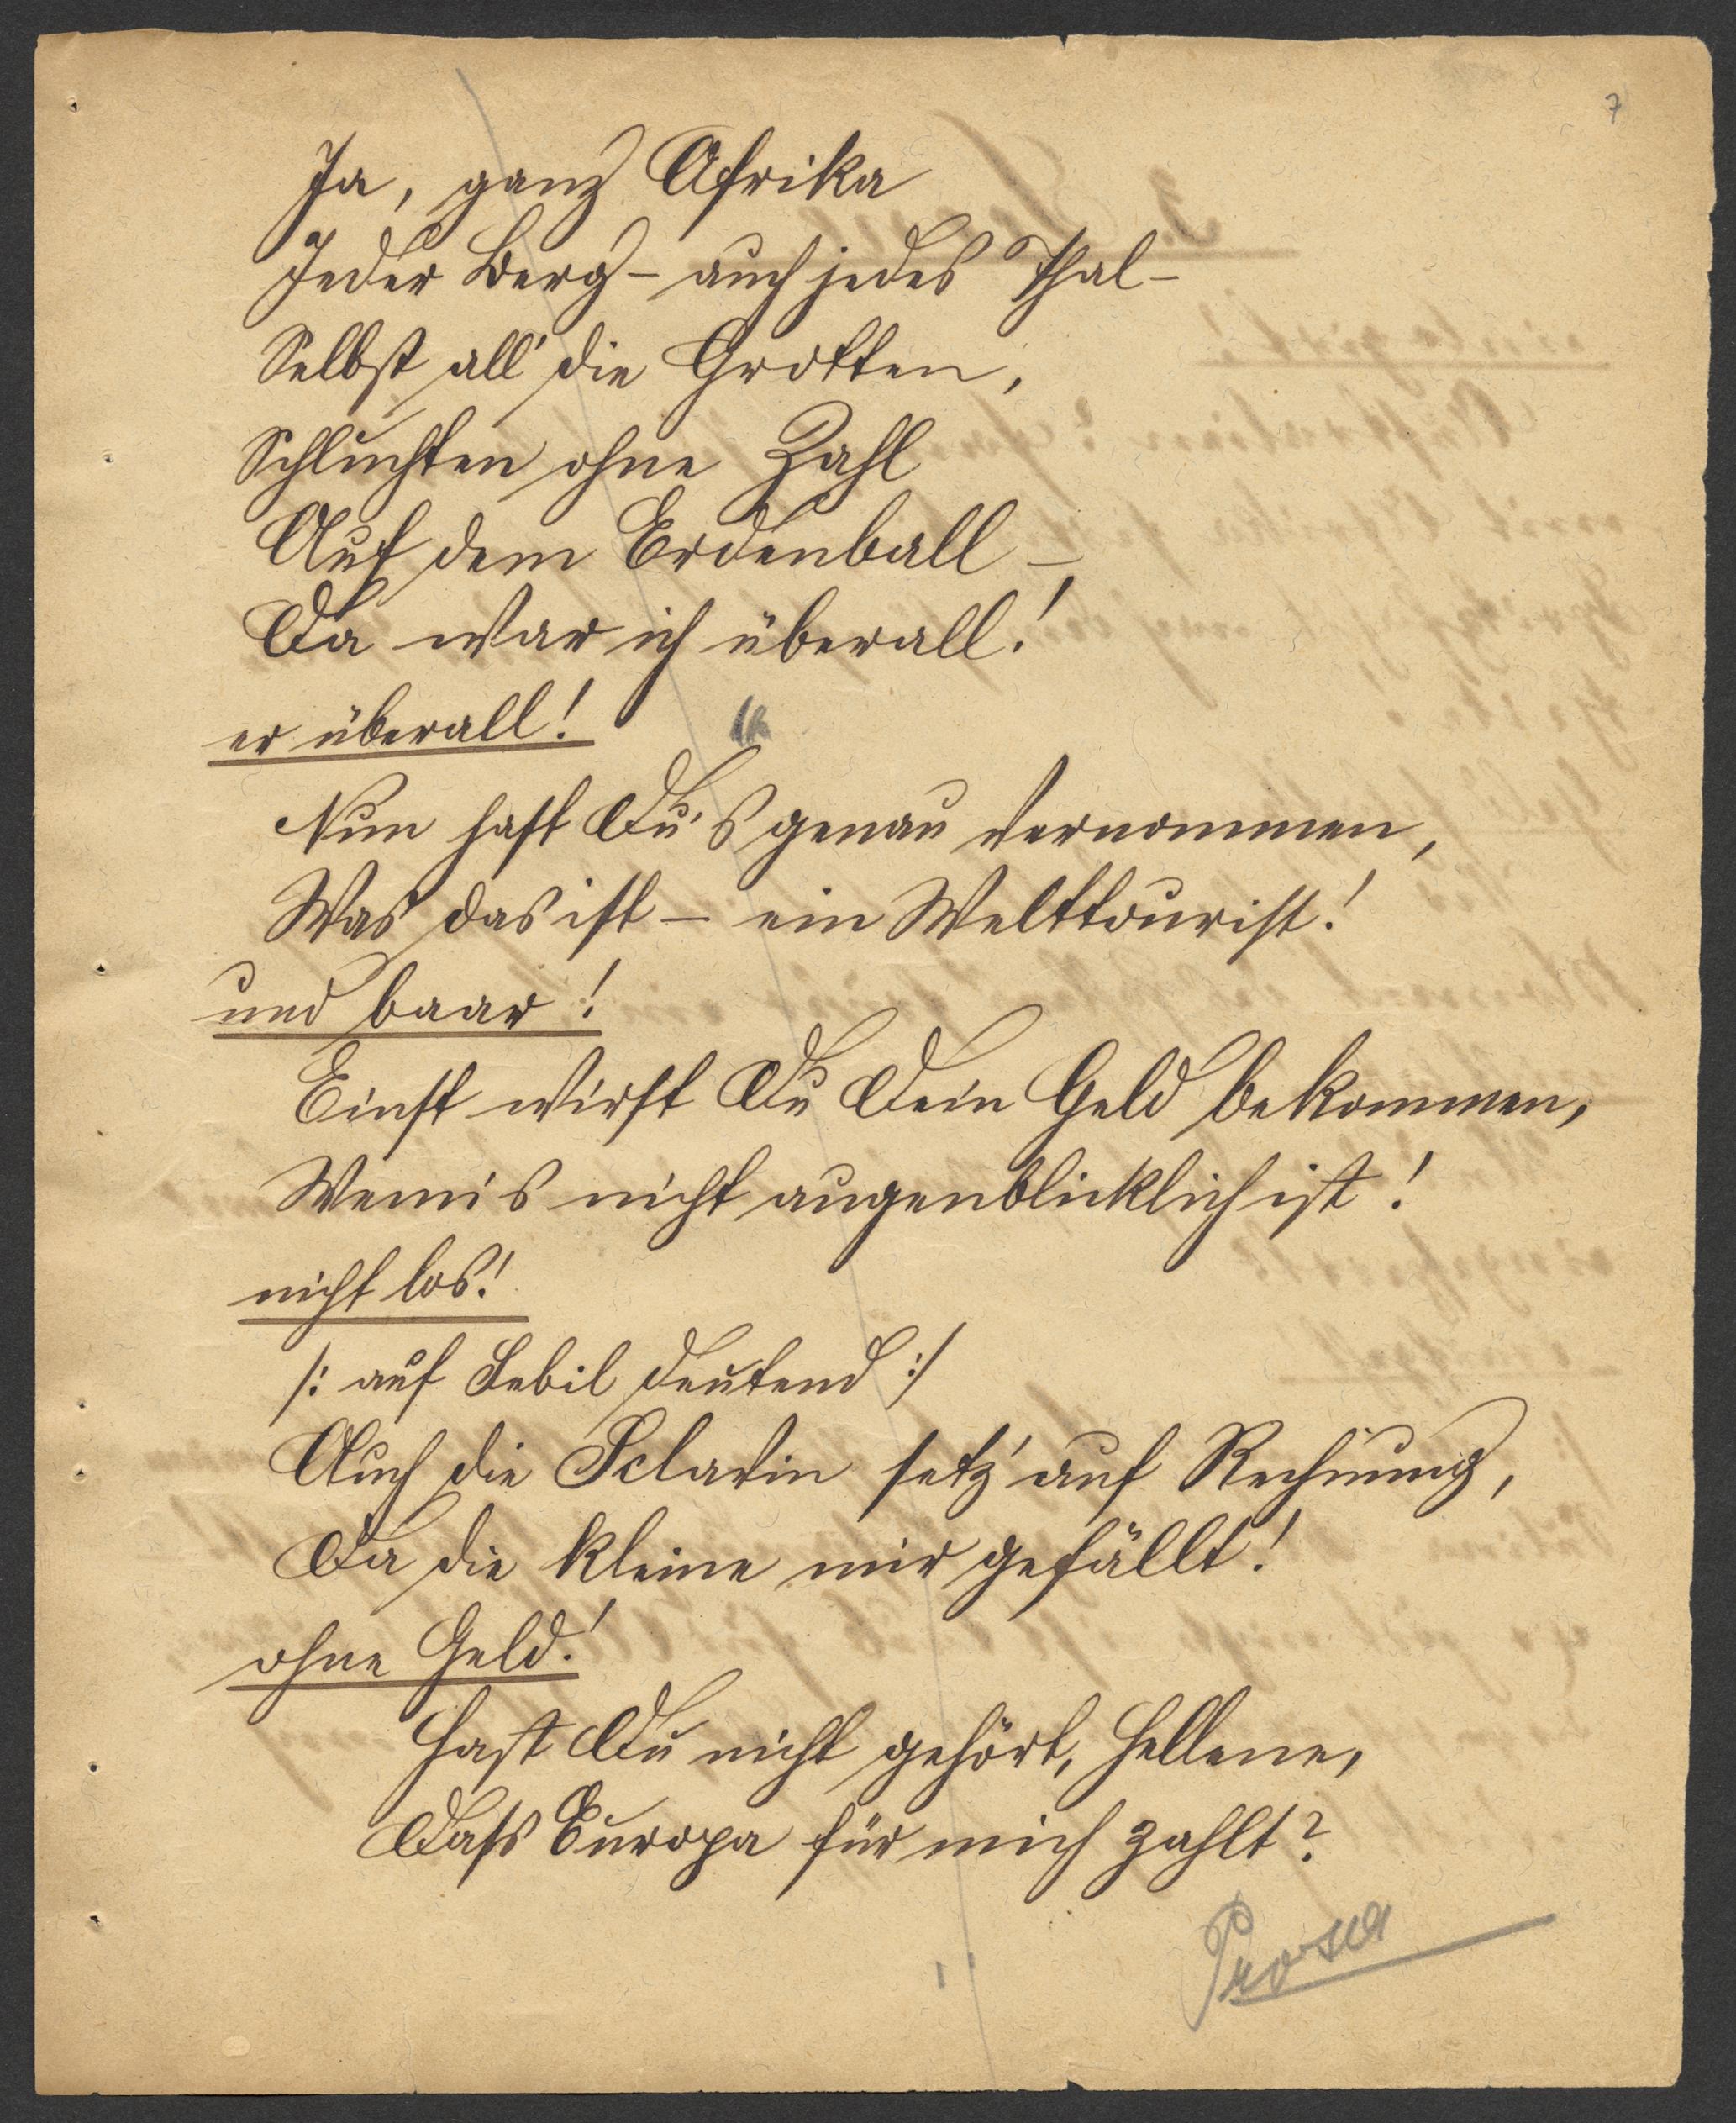 7
Ja, ganz Afrika
Jeder Berg – auch jedes Thal –
Selbst all' die Grotten,
Schluchten ohne Zahl
Auf dem Erdenball –
Da war ich überall!
er überall!
Nun hast Du's genau vernommen,
Was das ist – ein Welttourist!
und baar!
Einst wirst Du Dein Geld bekommen,
Wenn's nicht augenblicklich ist!
nicht los!
/: auf Sebil deutend :/
Auch die Sclavin setz' auf Rechnung,
Da die Kleine mir gefällt!
ohne Geld!
Hast Du nicht gehört, Hellene,
Dass Europa für mich zahlt?
Prosa